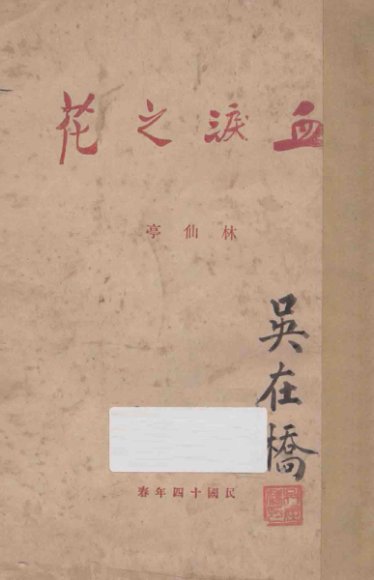 血淚之花
林仙亭
吳在橋
民國十四年春